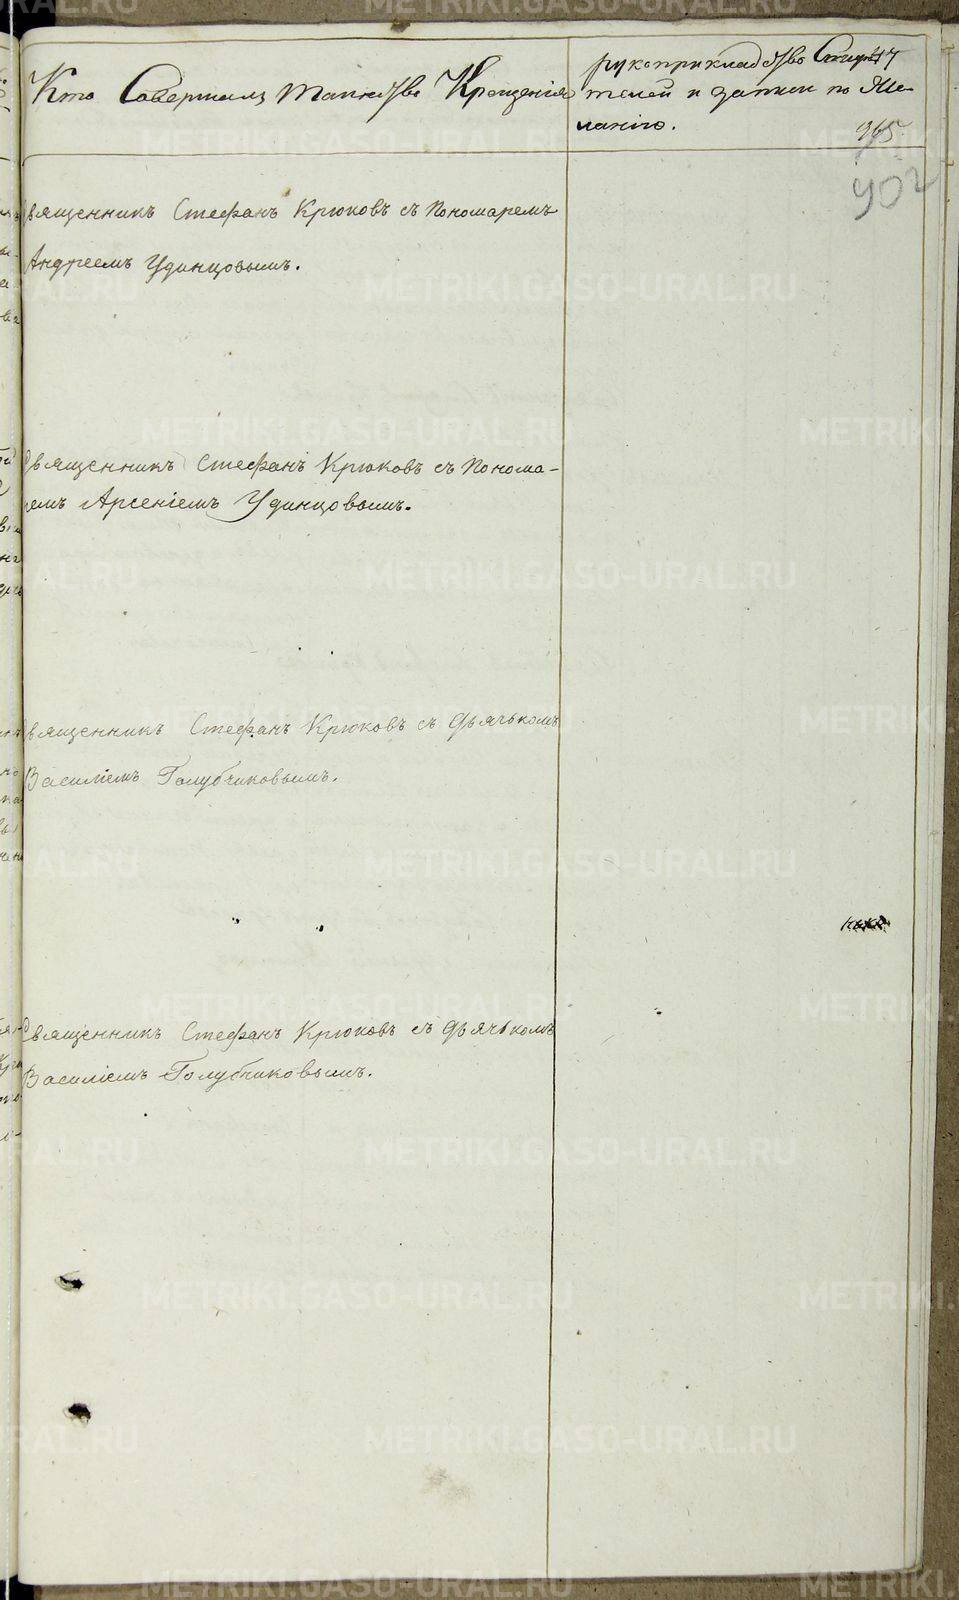 Кто Совершалъ таинство Крещенія
рукоприкладство Свидѣ 17
телей и записи по Же-
ланію.
965.
902
Священникъ Стефанъ Крюковъ съ Пономаремъ
Андреемъ Удинцовымъ.
Священникъ Стефанъ Крюковъ съ Понома-
ремъ Арсеніемъ Удинцовымъ.
Священникъ Стефанъ Крюковъ съ Дьячькомъ
Василіемъ Голубчиковымъ.
Священникъ Стефанъ Крюковъ съ Дьячькомъ
Василіемъ Голубчиковымъ.
METRIKI.GASO-URAL.RU